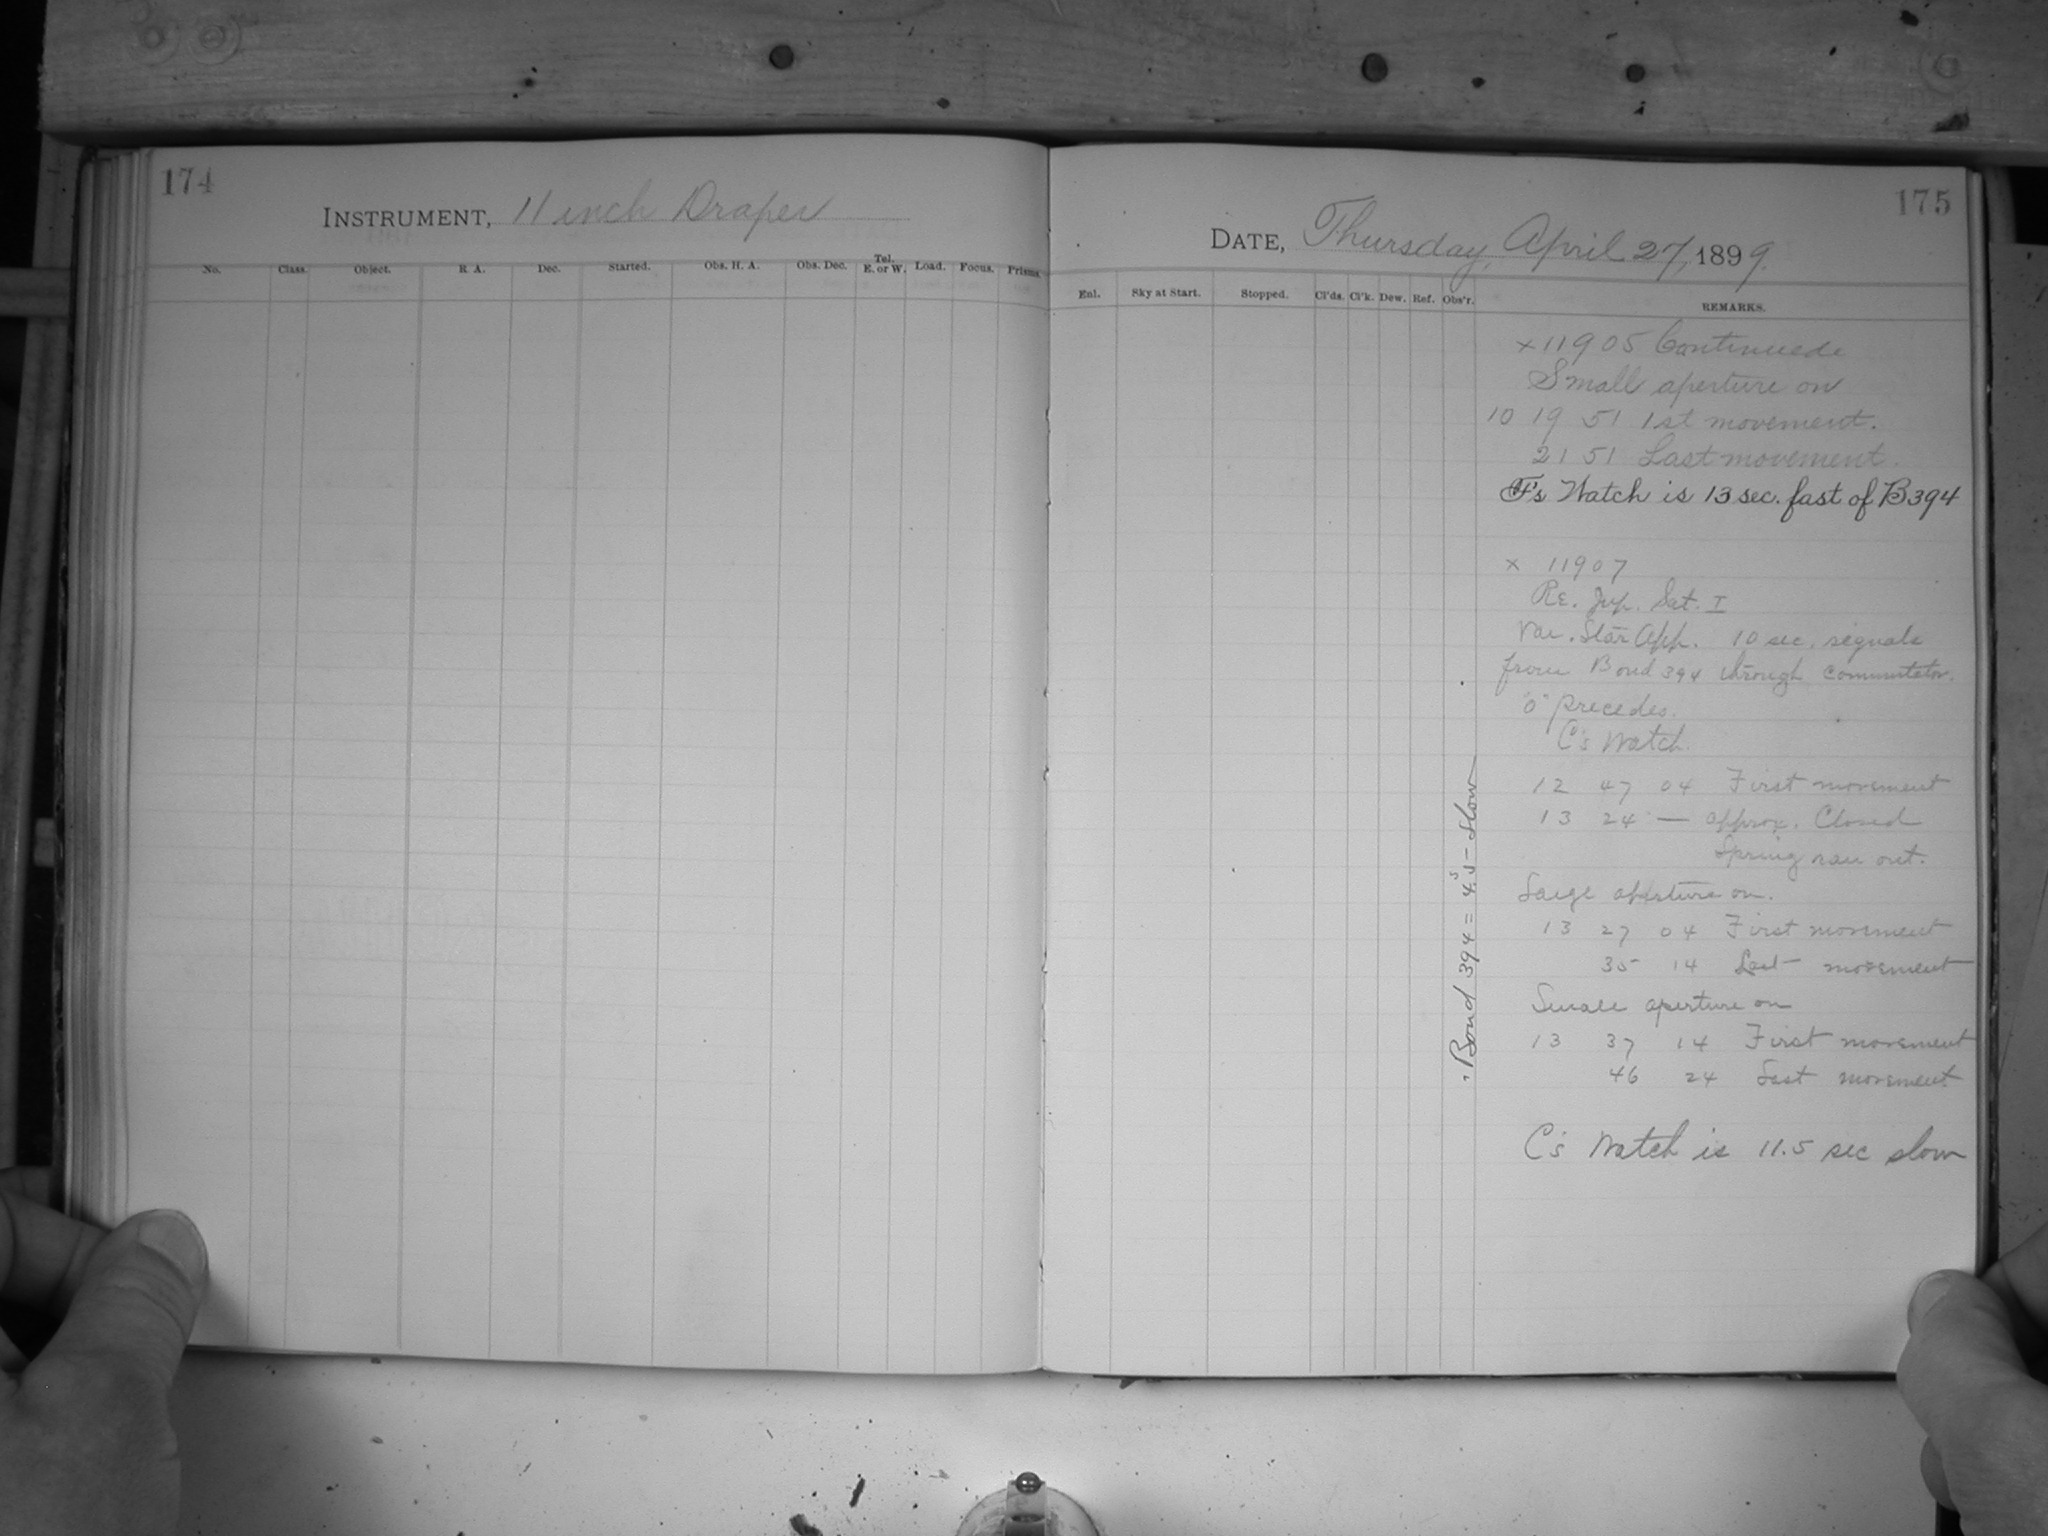 174
INSTRUMENT, 11 inch Draper
No. Class. Object. R. A. Dec. Started. Obs. H. A. Obs. Dec. Tel. E. or W. Load. Focus. Prisms.
175
DATE, Thursday, April 27, 1899.
Enl. Sky at Start. Stopped. Cl'ds. Cl'k. Dew. Ref. Obs'r. REMARKS.
x 11905 Continued
Small aperture on
10 19 51 1st movement.
21 51 Last movement.
F's Watch is 13 sec. fast of B394
x 11907
RE. Jup. Sat. I
Var. Star App. 10 sec. signals
from Bond 394 through commutator.
"0" precedes.
C's Watch.
12 47 04 First movement
13 24 — approx. Closed
Spring ran out.
Large aperture on.
13 27 04 First movement
35 14 Last movement
Small aperture on
13 37 14 First movement
46 24 Last movement
C's Watch is 11.5 sec slow
Bond 394 = 4.5s slow